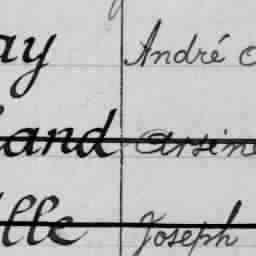 ay André
land Arsène
lle Joseph